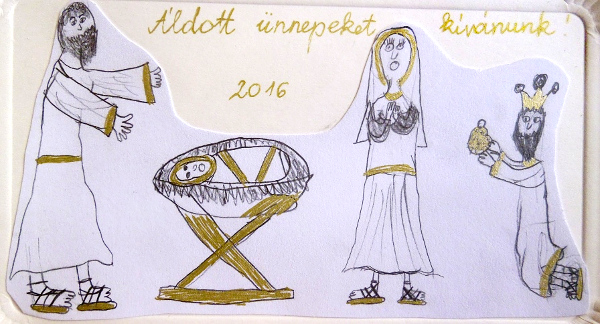 Áldott ünnepeket kívánunk!
2016